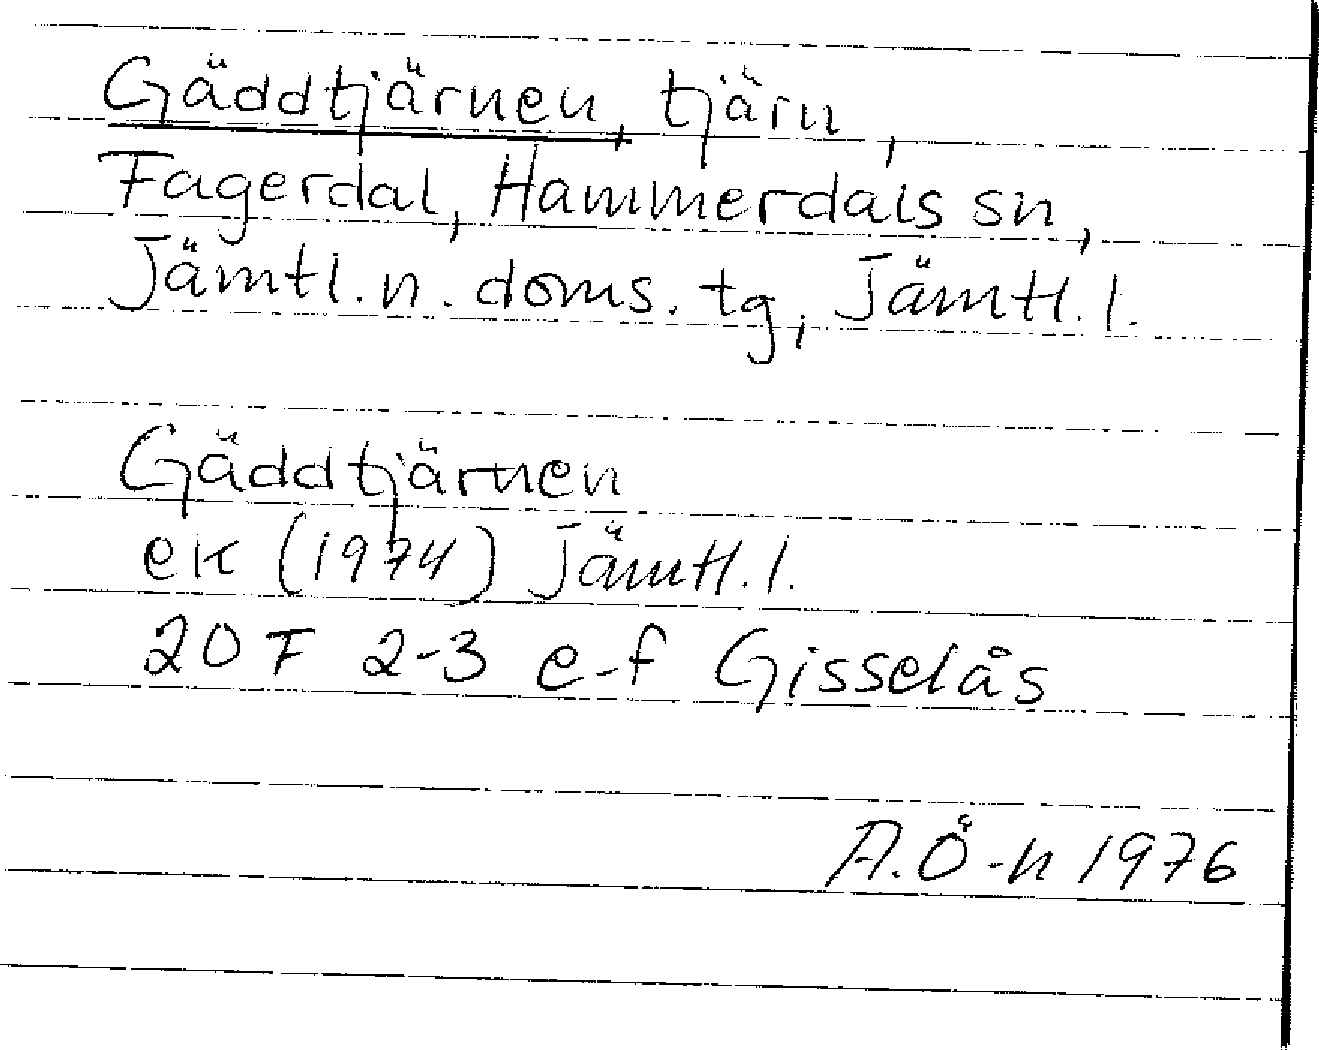 Gäddtjärnen, tjärn,
Fagerdal, Hammerdals sn,
Jämtl. n. doms. tg, Jämtl. l.
Gäddtjärnen
ek (1974) Jämtl. l.
20 F 2-3 e-f Gisselås
A. Ö-n 1976